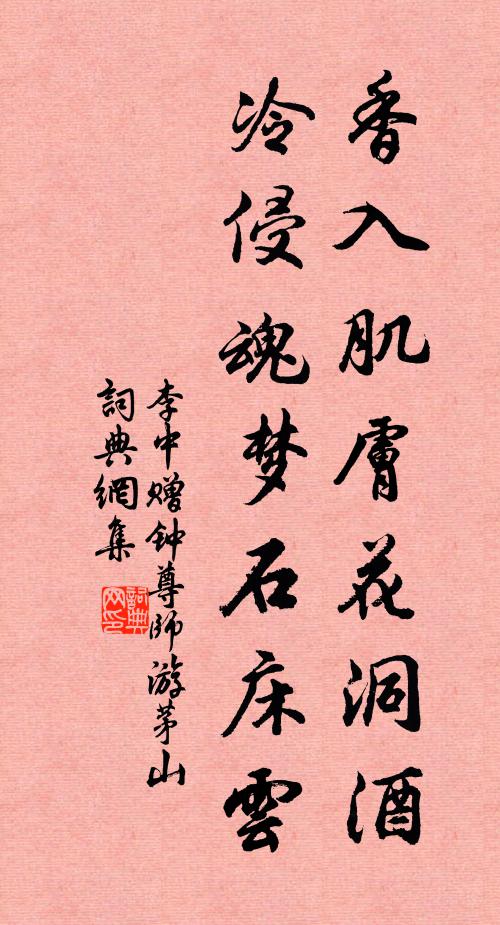 香入肌膚花洞酒
冷侵魂梦石床雲
李中赠钟尊師游茅山
詞典網集
詞典网印